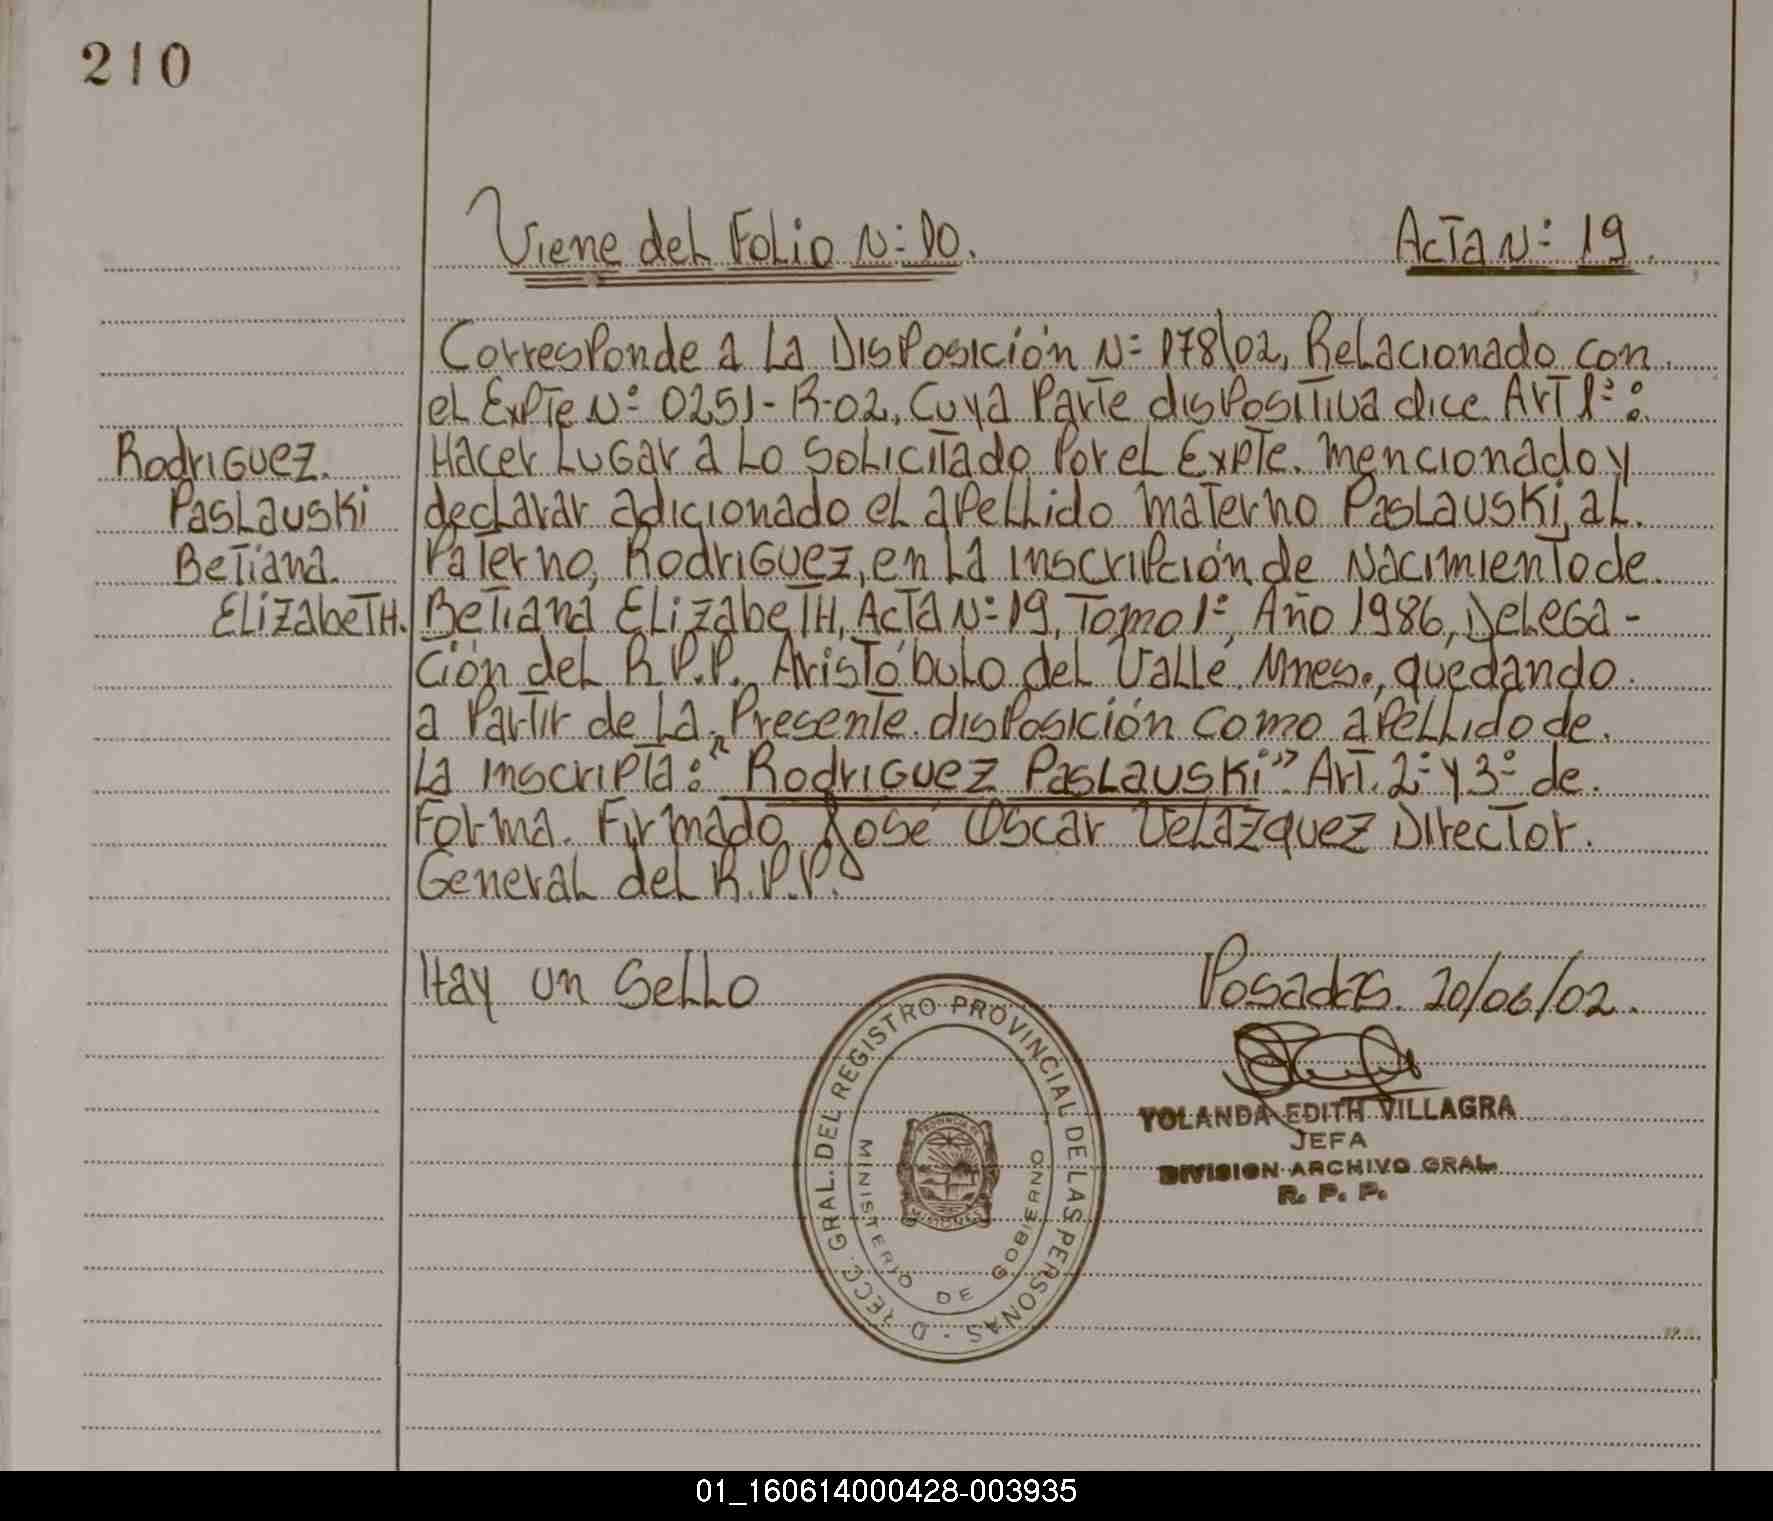 210
Viene del Folio N: 10. Acta N: 19.
Corresponde a la Disposición N: 178/02, Relacionado con
el Expte N: 0251-R-02, Cuya Parte dispositiva dice Art 1º:
Rodriguez. Hacer Lugar a Lo Solicitado Por el Expte. mencionado y
Paslauski declarar adicionado el apellido materno Paslauski, al
Betiana. Paterno, Rodriguez, en la inscripción de Nacimiento de
Elizabeth. Betiana Elizabeth, Acta N: 19, Tomo 1º, Año 1986, Delega-
ción del R.P.P. Aristóbulo del Valle, Mnes., quedando
a Partir de la Presente disposición como apellido de
la inscripta: "Rodriguez Paslauski" Art. 2º y 3º de
Forma. Firmado José Oscar Velazquez Director
General del R.P.P.
Hay un Sello Posadas 20/06/02.
D RECC. GRAL. DEL REGISTRO PROVINCIAL DE LAS PERSONAS
MINISTERIO DE GOBIERNO
MISIONES
YOLANDA EDITH VILLAGRA
JEFA
DIVISION ARCHIVO GRAL
R. P. P.
01_160614000428-003935